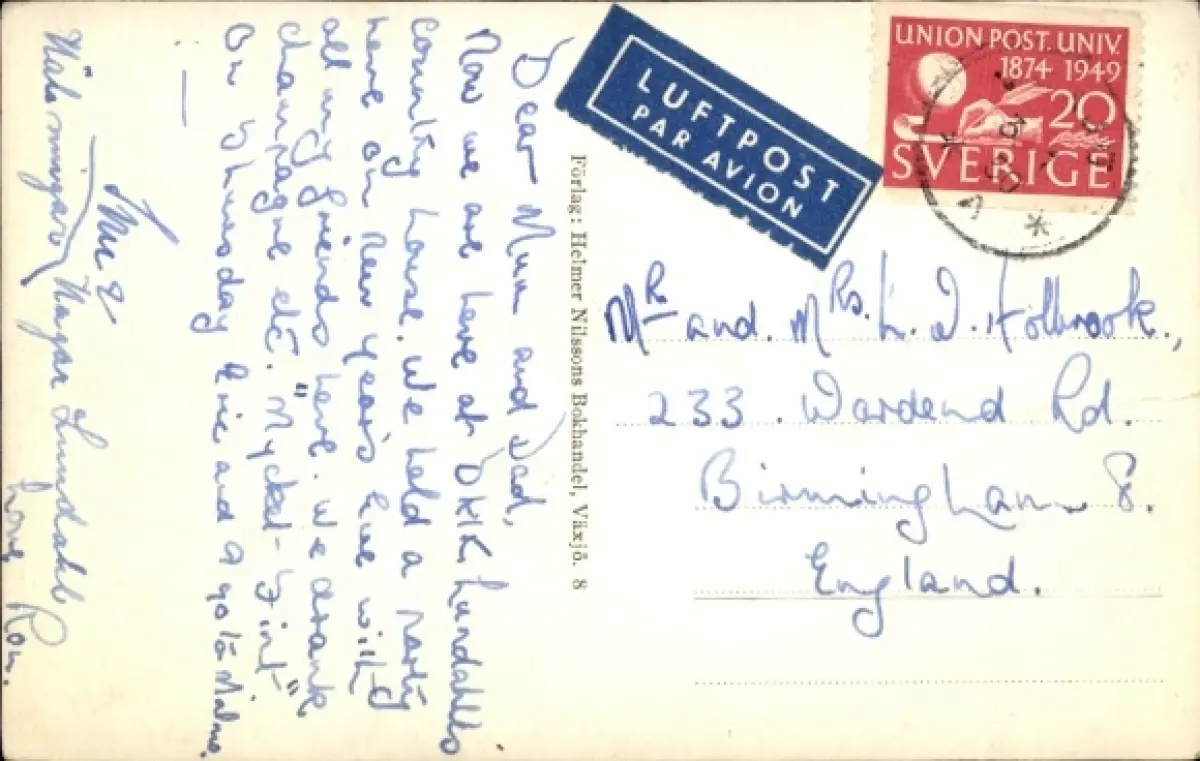 Dear Mum and Dad,
Now we are here at Dr K Lundahl's
country house. We held a party
here on New year's Eve with
all my friends here. We drank
champagne etc. "Mycket fint"
On Thursday Eric and I go to Malmo.
Hälsningar Ragnar Lundahl
Love Ron.
Förlag: Helmer Nilssons Bokhandel, Växjö. 8
LUFTPOST
PAR AVION
UNION POST. UNIV.
1874 1949
20
SVERIGE
Mr and Mrs. L. J. Holbrook,
233. Wardend Rd.
Birmingham 8.
England.